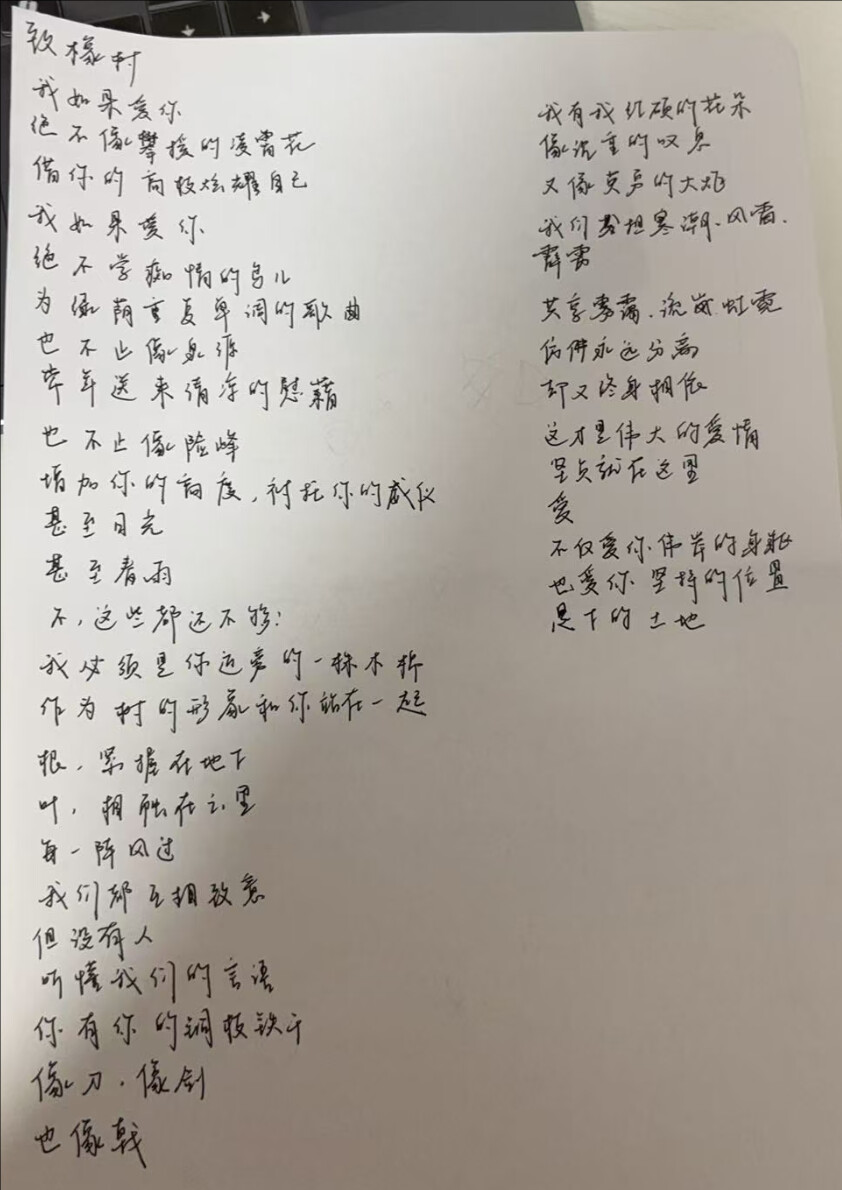 致橡树
我如果爱你
绝不像攀援的凌霄花
借你的高枝炫耀自己
我如果爱你
绝不学痴情的鸟儿
为绿荫重复单调的歌曲
也不止像泉源
常年送来清凉的慰藉
也不止像险峰
增加你的高度,衬托你的威仪
甚至日光
甚至春雨
不,这些都还不够!
我必须是你近旁的一株木棉
作为树的形象和你站在一起
根,紧握在地下
叶,相触在云里
每一阵风过
我们都互相致意
但没有人
听懂我们的言语
你有你的铜枝铁干
像刀、像剑
也像戟
我有我红硕的花朵
像沉重的叹息
又像英勇的火炬
我们分担寒潮、风雷、
霹雳
共享雾霭、流岚、虹霓
仿佛永远分离
却又终身相依
这才是伟大的爱情
坚贞就在这里
爱
不仅爱你伟岸的身躯
也爱你坚持的位置
足下的土地